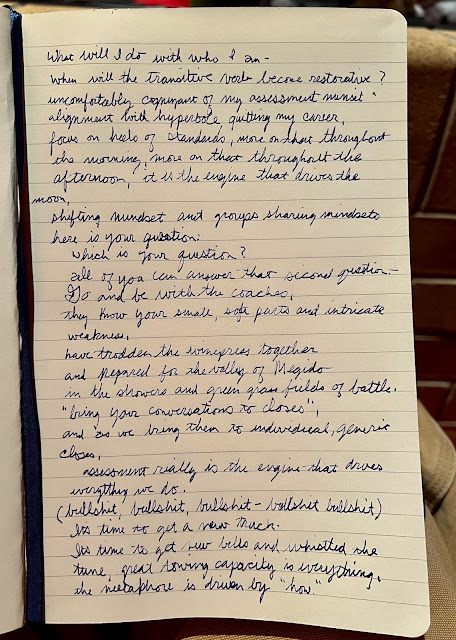 What will I do with who I am -
when will the transitive verb become restorative?
uncomfortably cognizant of my assessment
alignment with hyperbole gutting my career,
focus on heels of standards, more on that throughout
the morning, more on that throughout the
afternoon, it is the engine that drives the
moon,
shifting mindset and groups sharing mindsets
here is your question:
which is your question?
all of you can answer that second question -
Go and be with the coaches,
they know your small, soft parts and intricate
weakness,
have trodden the winepress together
and prepared for the valley of Megido
in the showers and green grass fields of battle.
"bring your conversations to closes",
and as we bring them to individual, generic
closes,
assessment really is the engine that drives
everything we do.
(bullshit, bullshit, bullshit - bullshit bullshit)
Its time to get a new truck.
Its time to get new bells and whistled the
tune, great towing capacity is everything,
the metaphore is driven by "how"